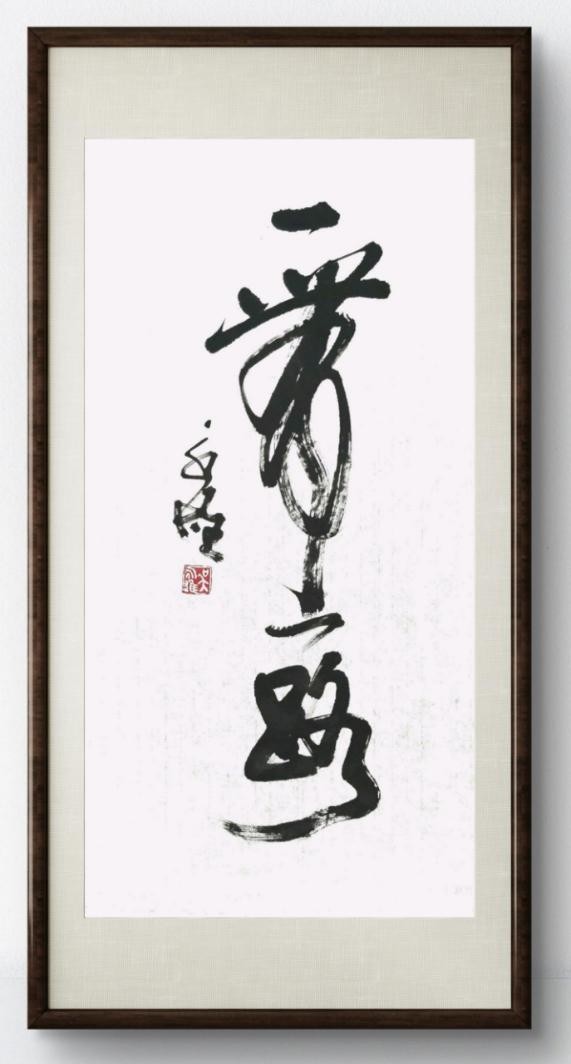 一带一路